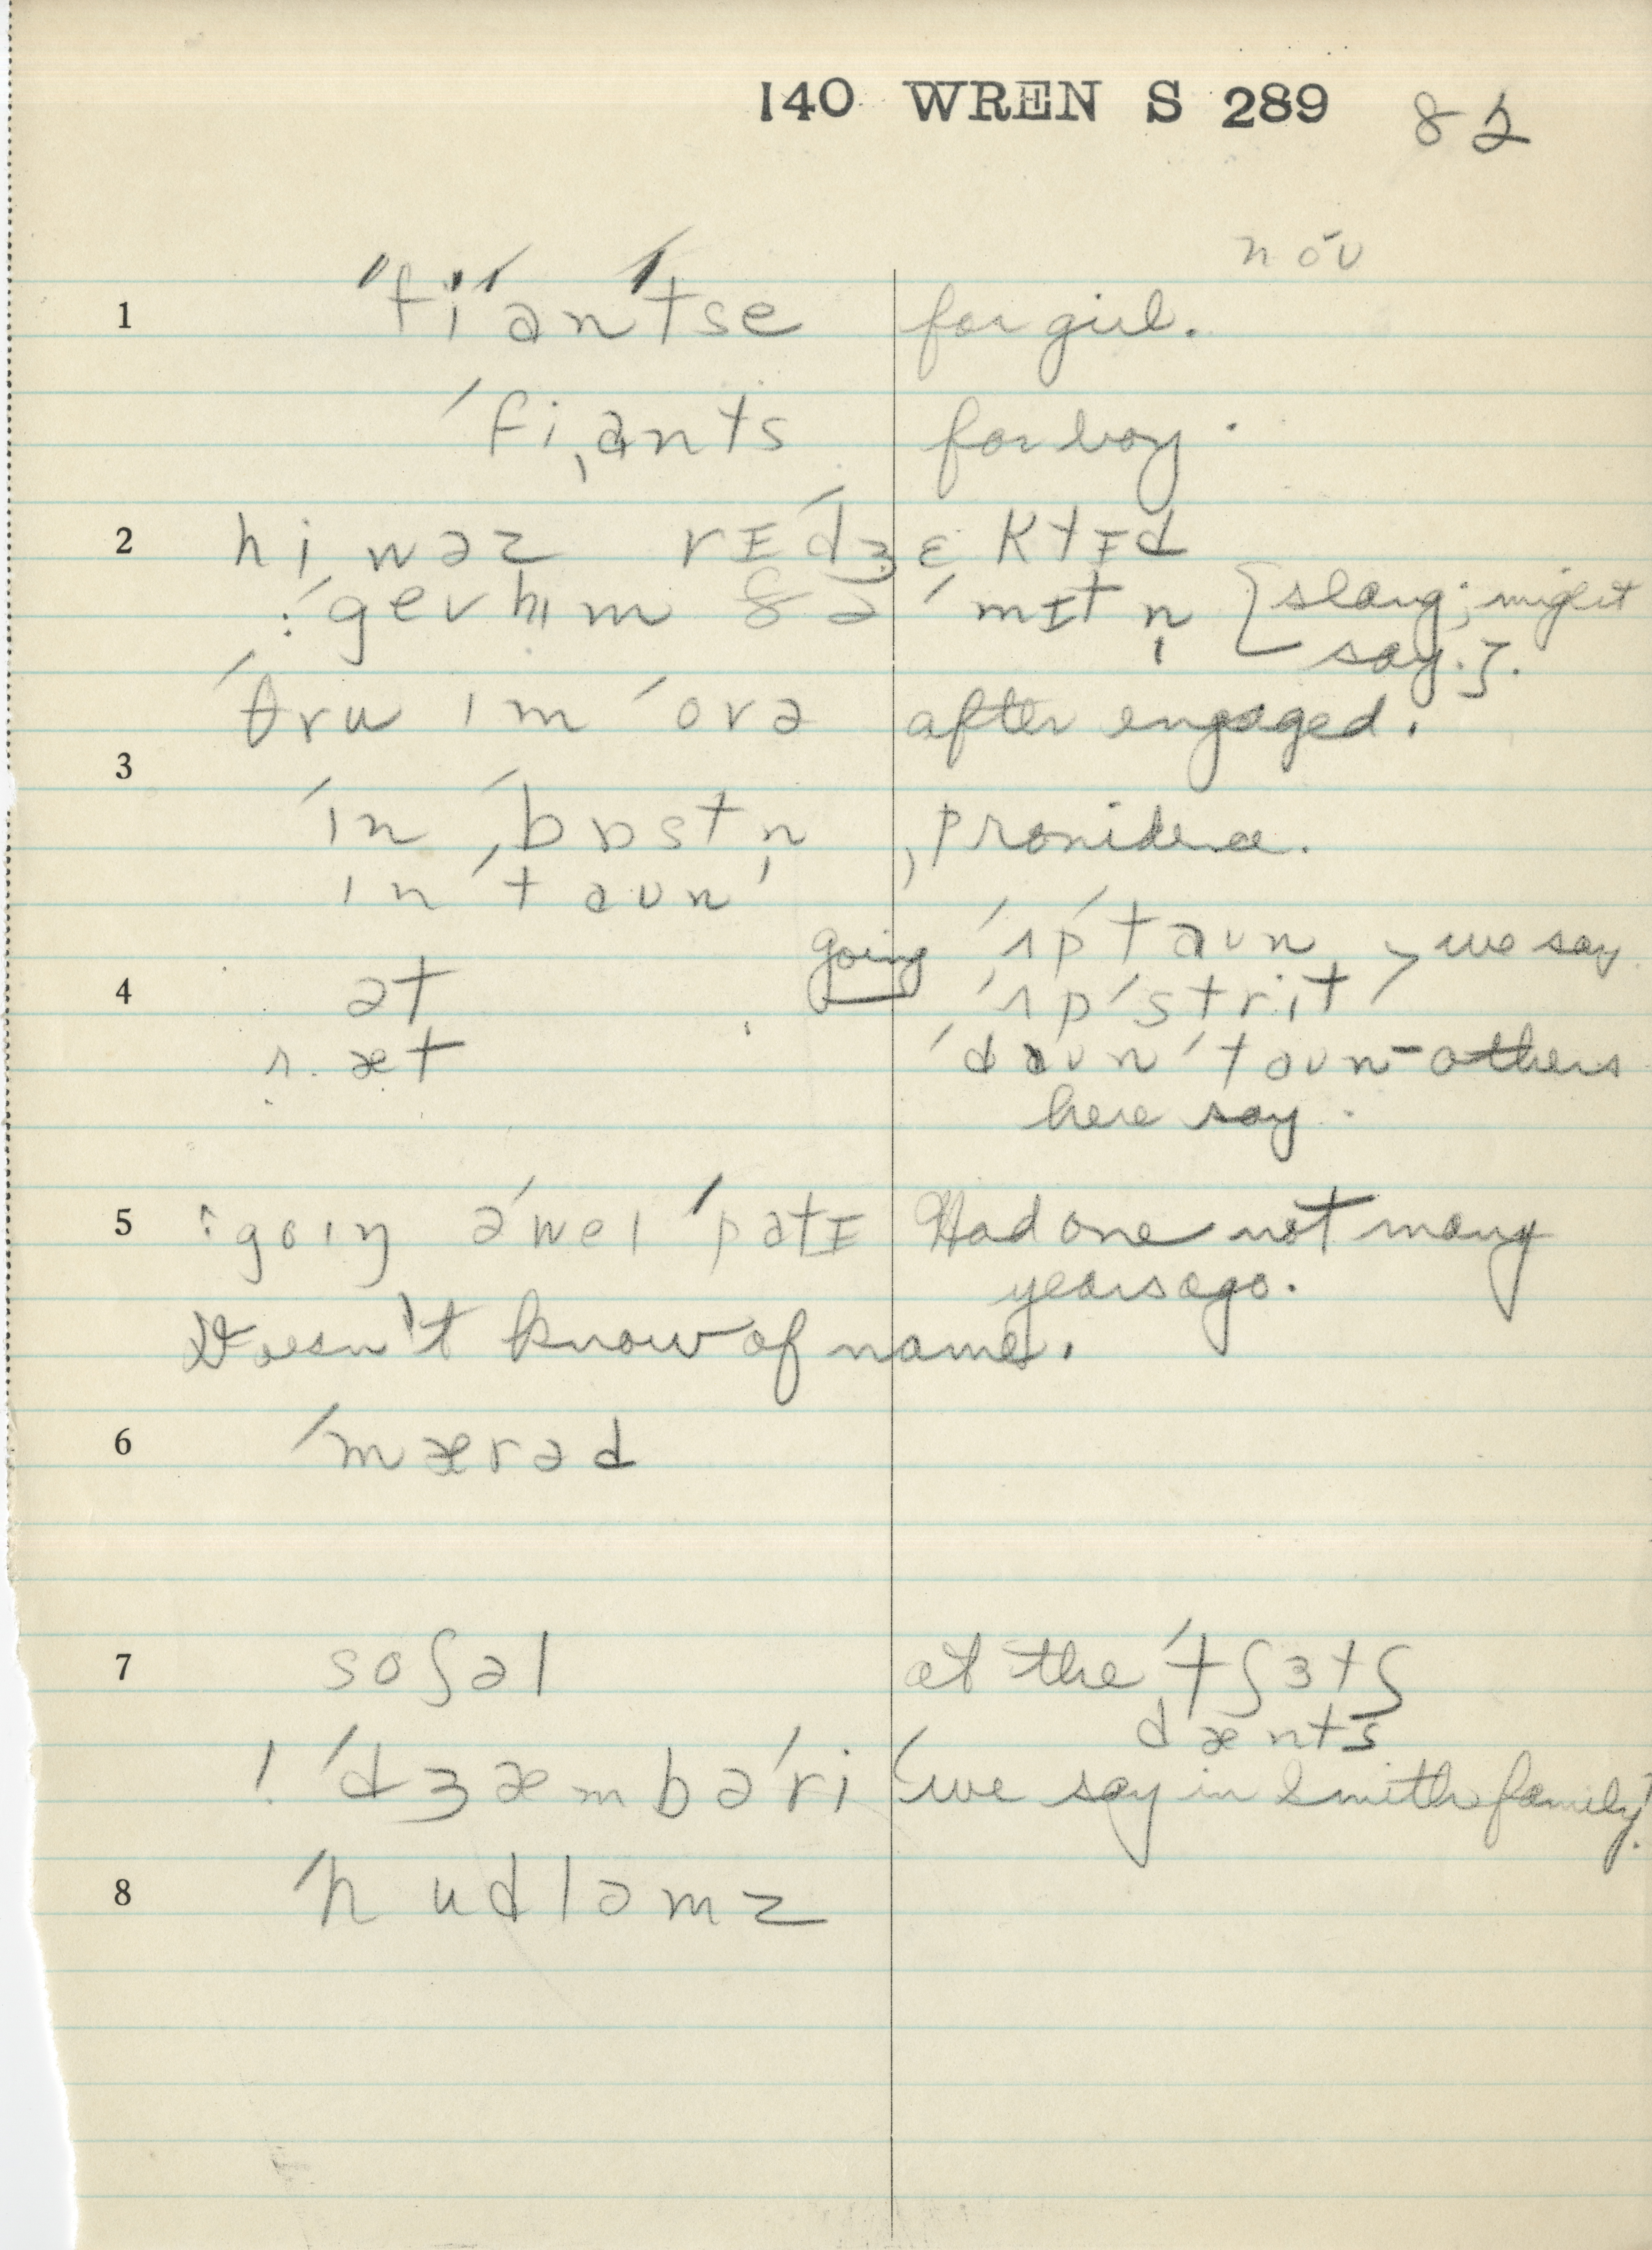 140 WREN S 289 82
nóʊ
1 ˈfiˈanˈtse for girl.
ˈfiˌants for boy.
2 hi wəz rɪˈdʒɛktɪd
:ˈgev hɪm ðə ˈmɪtn̩ [slang; might
say.].
ˈθru ɪm ˈovə after engaged.
3 ˈɪn ˌˈbɒstn̩, Providence.
ɪn ˈtaun
4 ət going ˈʌpˈtaun > we say
r. æt ˈʌpˈstrit
ˈdaunˈtaun - others
here say.
5 :goiŋ əˈwei ˈpatɪ Had one not many
years ago.
Doesn't know of name.
6 ˈmærəd
7 soʃəl at the ˈtʃɜtʃ
dænts
! ˈdʒæmbəˈri (we say in Smith family)
8 ˈhudləmz